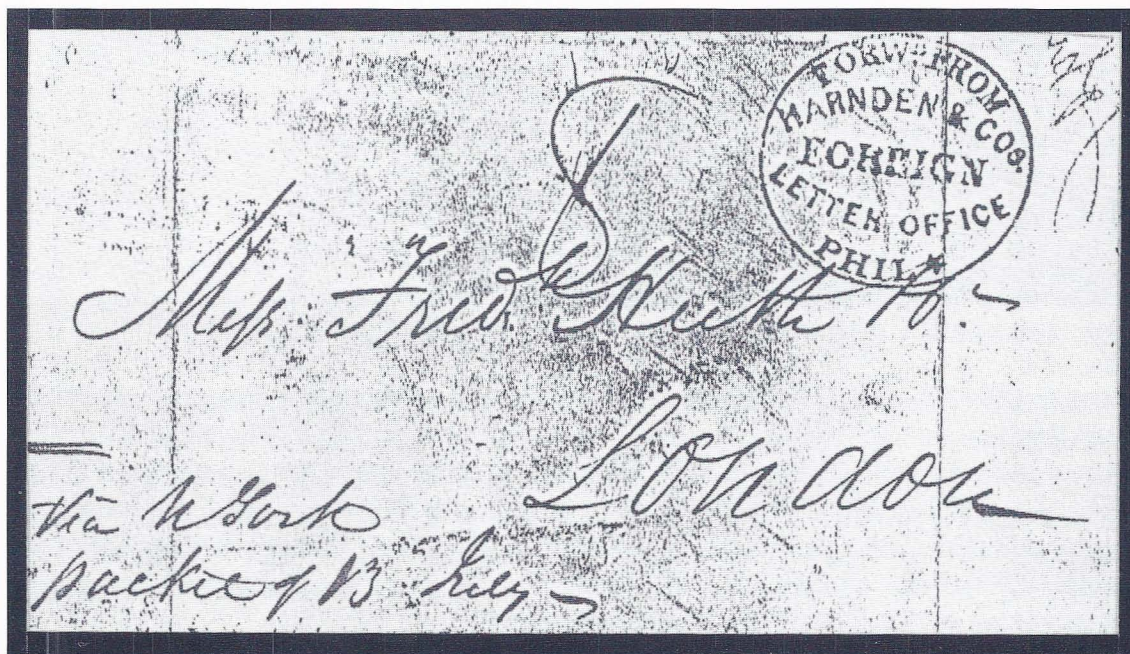 FORWᴰ FROM
HARNDEN & COS.
FOREIGN
LETTER OFFICE
PHILᴬ
8
Mess Fredk Huth & Co
London
via N York
packet of 13 July